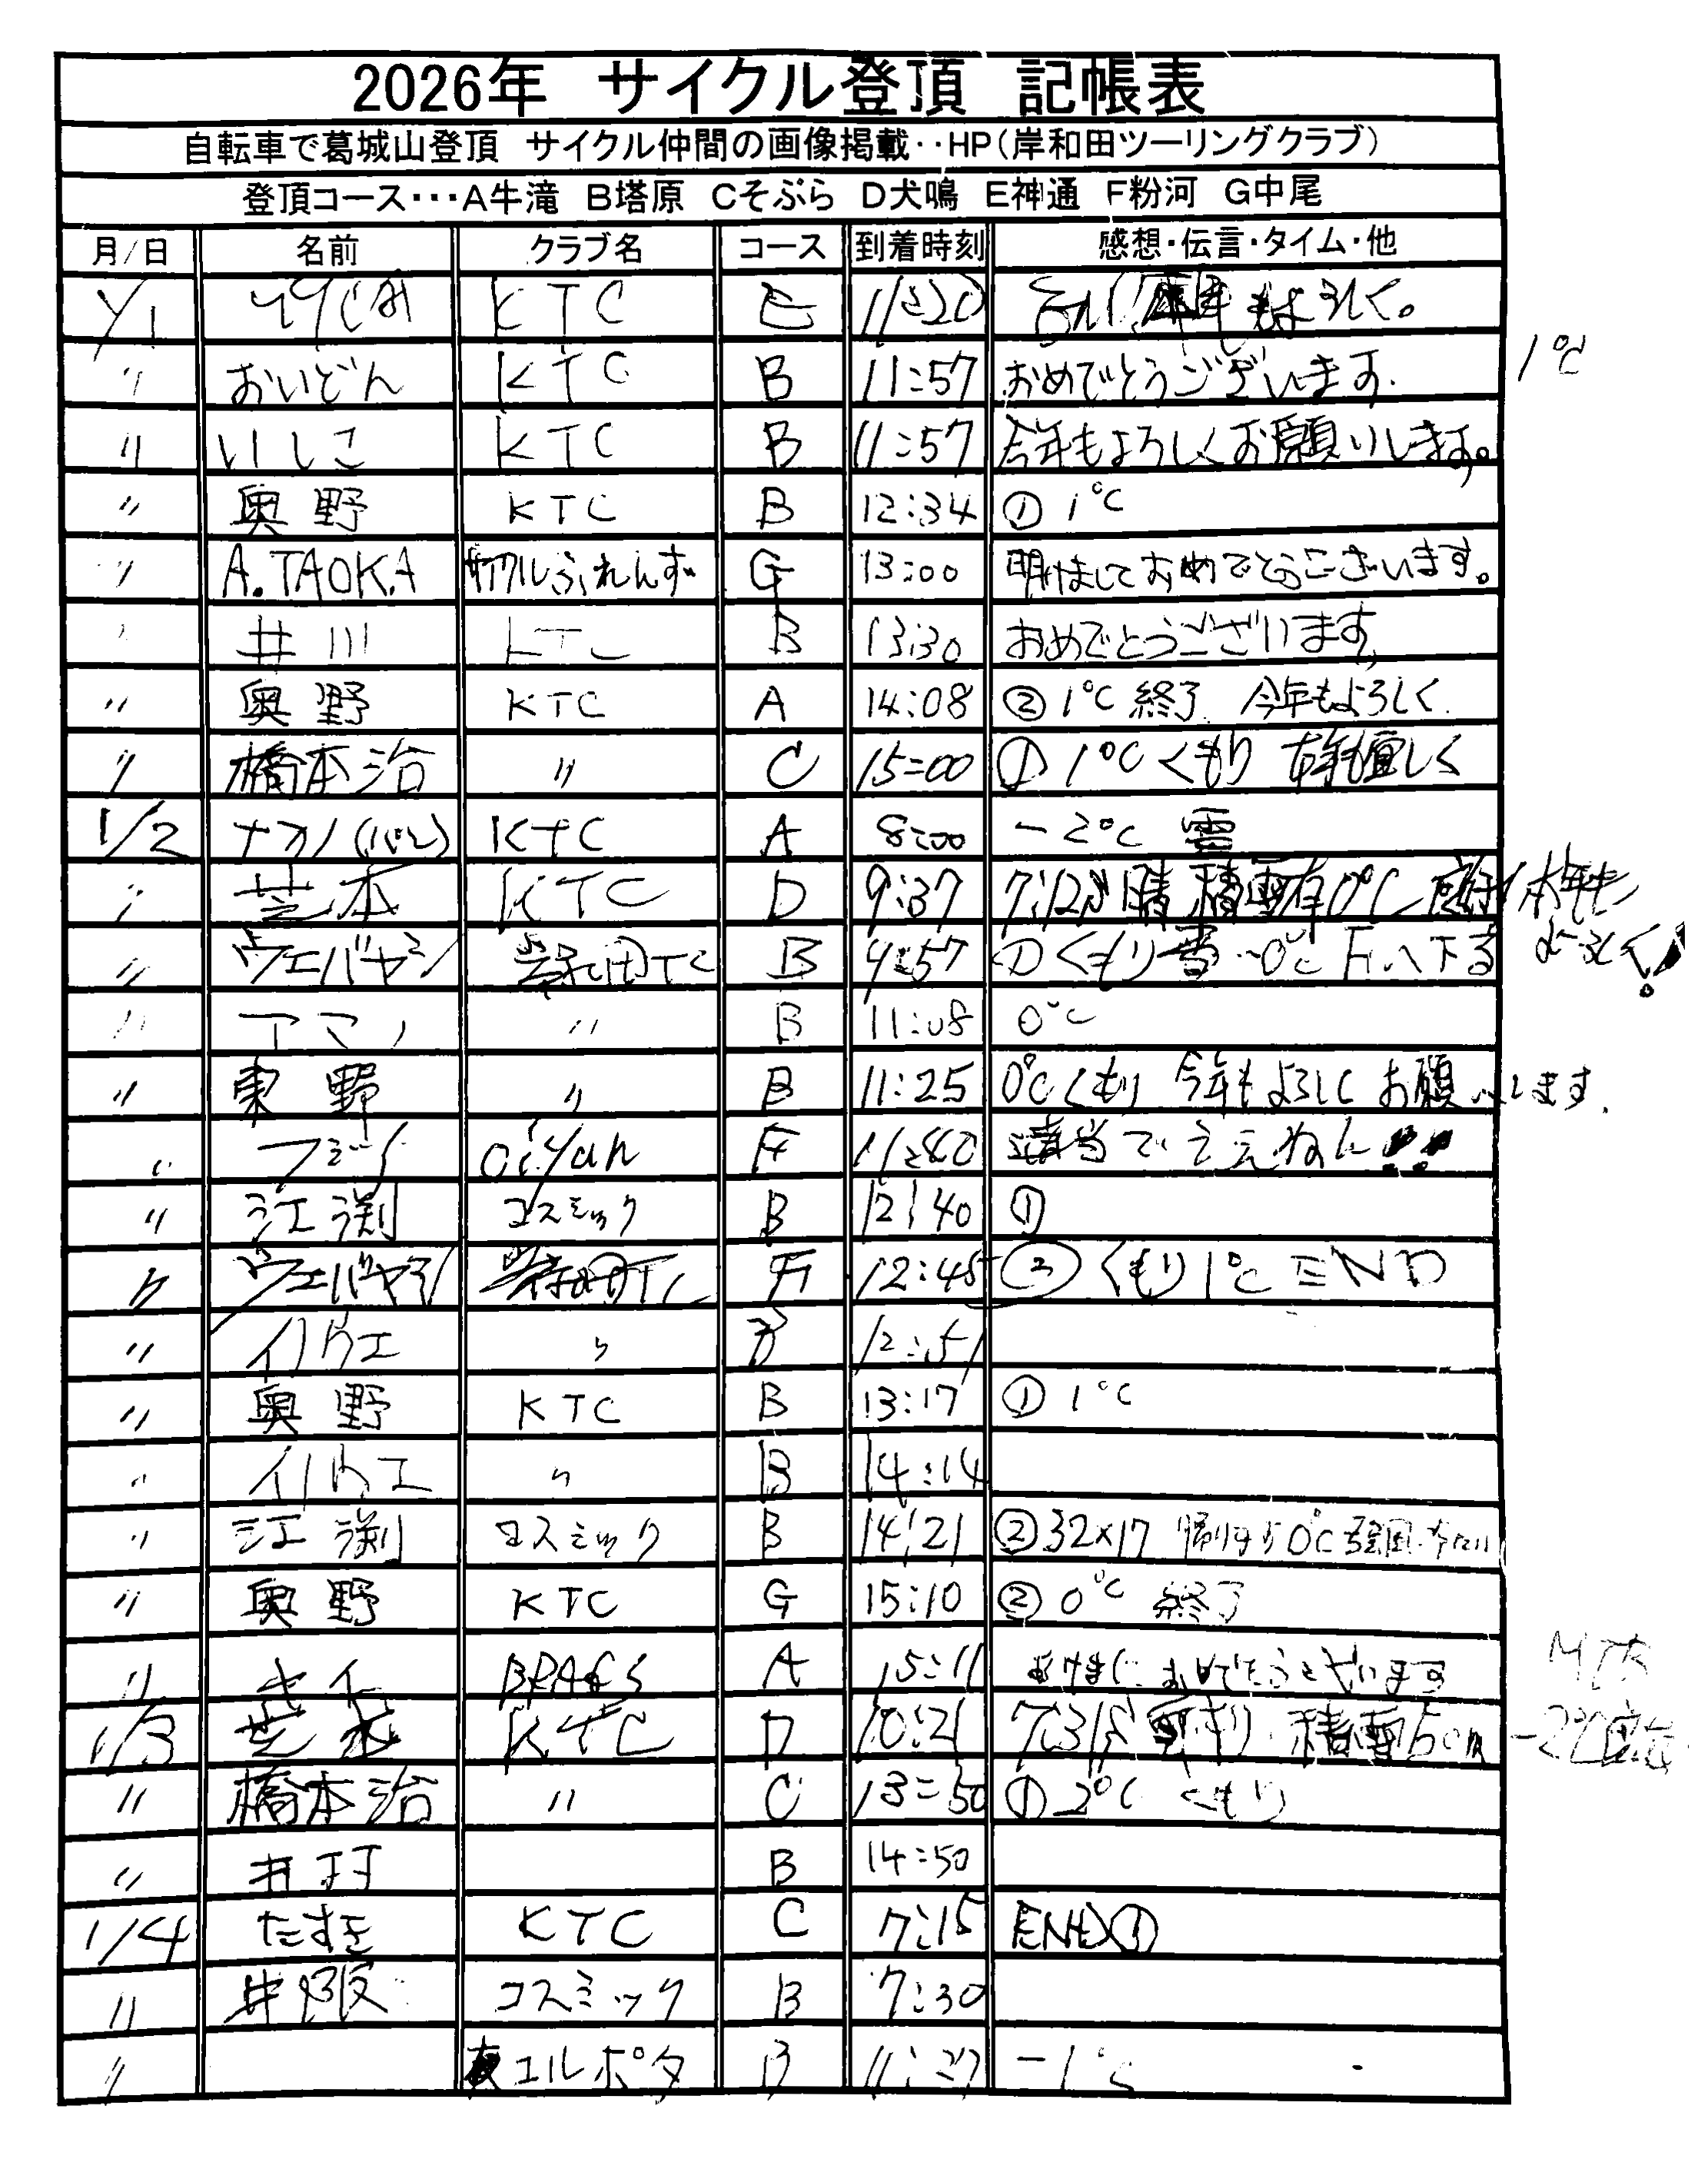 2026年 サイクル登頂 記帳表
自転車で葛城山登頂 サイクル仲間の画像掲載‥HP(岸和田ツーリングクラブ)
登頂コース･･･A牛滝 B塔原 Cそぶら D犬鳴 E神通 F粉河 G中尾
月/日 名前 クラブ名 コース 到着時刻 感想･伝言･タイム･他
1/1 KTC E 11:20 もよろしく。
〃 おいどん KTC B 11:57 おめでとうございます. 1℃
〃 いしこ KTC B 11:57 今年もよろしくお願いします。
〃 奥野 KTC B 12:34 ① 1℃
〃 A.TAOKA サイクルふれんず G 13:00 明けましておめでとうございます。
〃 井川 KTC B 13:30 おめでとうございます
〃 奥野 KTC A 14:08 ② 1℃ 終了 今年もよろしく
〃 橋本治 〃 C 15:00 ① 1℃ くもり 本年も宜しく
1/2 ナカノ KTC A 8:00 -2℃ 雪
〃 芝本 KTC D 9:37 晴 積雪有 0℃ 本年も よろしく!
〃 ウエバヤシ 岸和田TC B 9:57 ① くもり 0℃ Fへ下る
〃 アマノ 〃 B 11:08 0℃
〃 東野 〃 B 11:25 0℃ くもり 今年もよろしくお願いします.
〃 oiyan F 11:40 でええねん!!
〃 江渕 コスミック B 12:40 ①
〃 ウエバヤシ 岸和田TC F 12:45 ② くもり 1℃ END
〃 イノウエ 〃 B 12:51
〃 奥野 KTC B 13:17 ① 1℃
〃 イノウエ 〃 B 14:14
〃 江渕 コスミック B 14:21 ② 32×17 0℃
〃 奥野 KTC G 15:10 ② 0℃ 終了
〃 A 15:11 おめでとうございます
1/3 芝本 KTC D 10:21 積雪5cm -2℃
〃 橋本治 〃 C 13:50 ① 2℃ くもり
〃 井村 B 14:50
1/4 たすき KTC C 7:15 END①
〃 井阪 コスミック B 7:30
〃 エルポタ B 11:27 -1℃